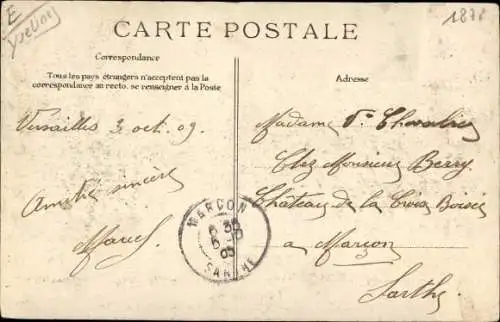 E
Yvelines
1878
CARTE POSTALE
Correspondance
Tous les pays étrangers n'acceptent pas la
correspondance au recto, se renseigner à la Poste
Adresse
Versailles 3 oct. 09.
Amitié sincère
Marcel
Madame Vve Chevalier
Chez Monsieur Berry
Château de la Croix Boisée
a Marçon
Sarthe
MARÇON
SARTHE